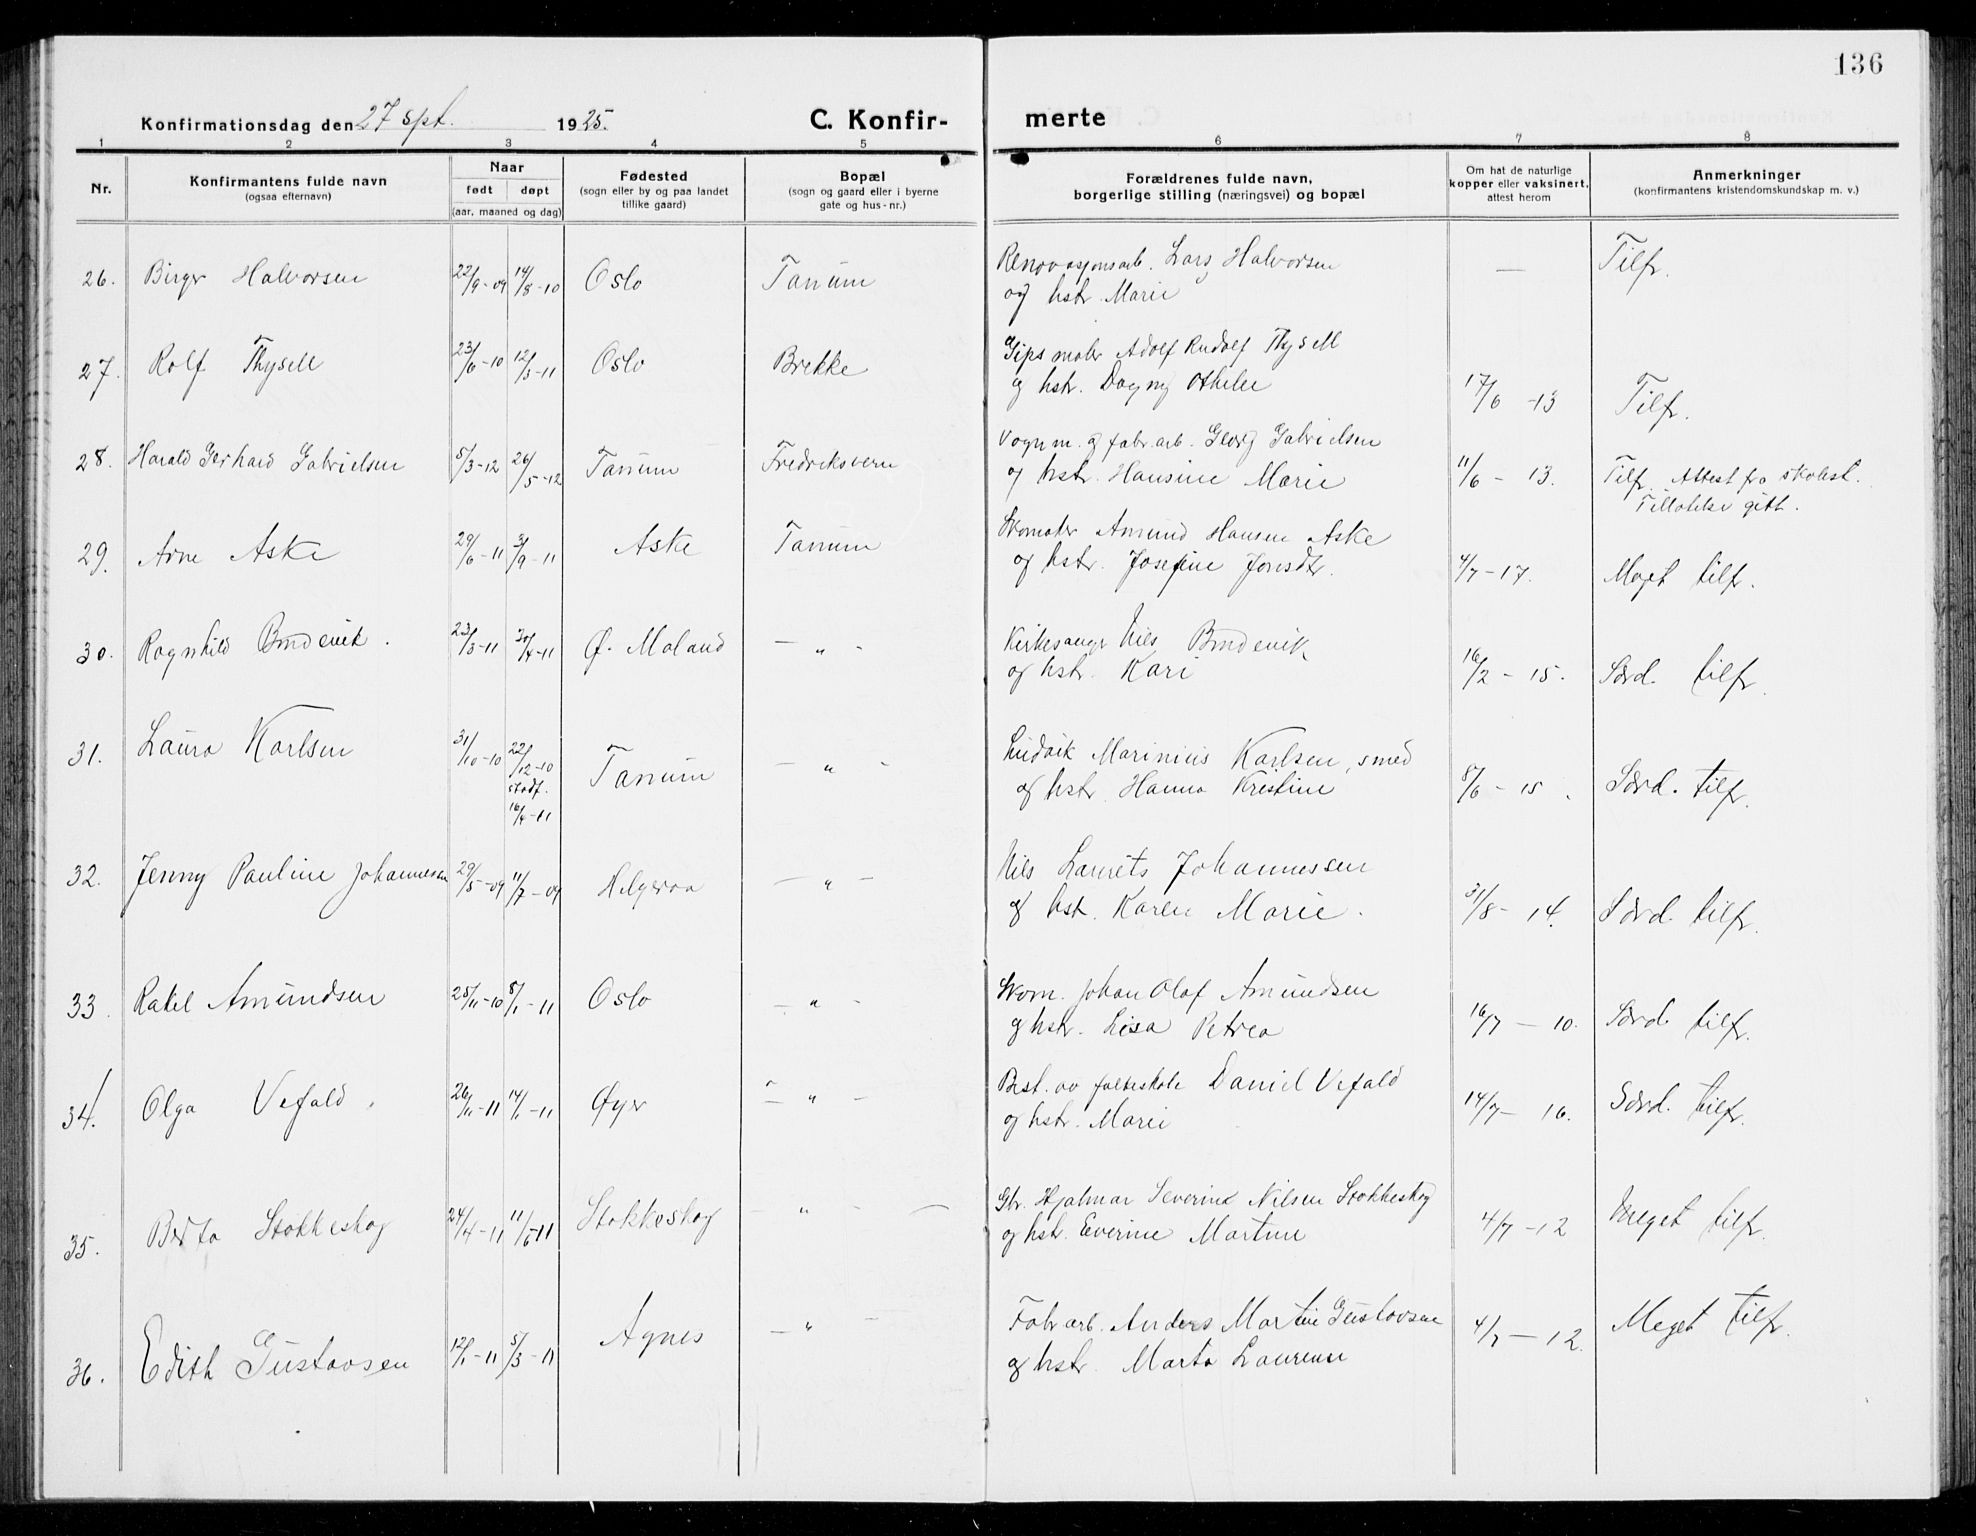 136
Konfirmationsdag den 27 spt. 1925.
C. Konfir-
merte
1 2 3 4 5 6 7 8
Nr.
Konfirmantens fulde navn
(ogsaa efternavn)
Naar
født døpt
(aar, maaned og dag)
Fødested
(sogn eller by og paa landet
tillike gaard)
Bopæl
(sogn og gaard eller i byerne
gate og hus-nr.)
Forældrenes fulde navn,
borgerlige stilling (næringsvei) og bopæl
Om hat de naturlige
kopper eller vaksinert,
attest herom
Anmerkninger
(konfirmantens kristendomskundskap m. v.)
26. Birger Halvorsen 22/9-09 14/8-10 Oslo Tanum
Renovasjonsarb. Lars Halvorsen
og hstr. Marie
— Tilfr.
27. Rolf Thysell 23/6-10 12/3-11 Oslo Brekke
Gipsmaker Adolf Rudolf Thysell
og hstr. Dagny Othilie
17/6 -13 Tilfr.
28. Harald Gerhard Gabrielsen 5/3-12 26/5-12 Tanum Fredriksvern
Vognm. og fabr.arb. Georg Gabrielsen
og hstr. Hansine Marie
11/6 - 13. Tilfr. Attest fra skolest.
Tillatelse gitt.
29. Arne Aske 29/6-11 3/9-11 Aske Tanum
Skomaker Amund Hansen Aske
og hstr. Josefine Jonsdtr.
4/7-17. Meget tilfr.
30. Ragnhild Bredevik. 23/3-11 30/4-11 Ø. Moland — " -
Kirkesanger Nils Bredevik
og hstr. Kari
16/2 - 15. Særd. tilfr.
31. Laura Karlsen 31/10-10 22/12-10
stadf.
16/4-11
Tanum — " -
Ludvik Marinius Karlsen, smed
og hstr. Hanna Kristine
8/6 - 15. Særd. tilfr.
32. Jenny Pauline Johannessen 29/5-09 11/7-09 Helgeroa — " —
Nils Laurits Johannessen
og hst. Karen Marie.
31/8- 14. Særd. tilfr.
33. Rakel Amundsen 25/11-10 8/1-11 Oslo — " -
Skom. Johan Olaf Amundsen
og hstr. Lisa Petrea
16/7 — 10. Særd. tilfr.
34. Olga Vefald. 26/11-11 14/1-11 Øyer — " —
Best. av folkeskole Daniel Vefald
og hstr. Marie
14/7- 16. Særd. tilfr.
35. Berta Stokkeskog 24/4-11 11/6-11 Stokkeskog — " - —
Gbr. Hjalmar Severin Nilsen Stokkeskog
og hstr. Everine Martine
4/7-12 Meget tilfr.
36. Edith Gustavsen 12/1-11 5/3-11 Agnes — " —
Fabr.arb. Anders Martin Gustavsen
og hstr. Marta Laurense
4/7—12. Meget tilfr.